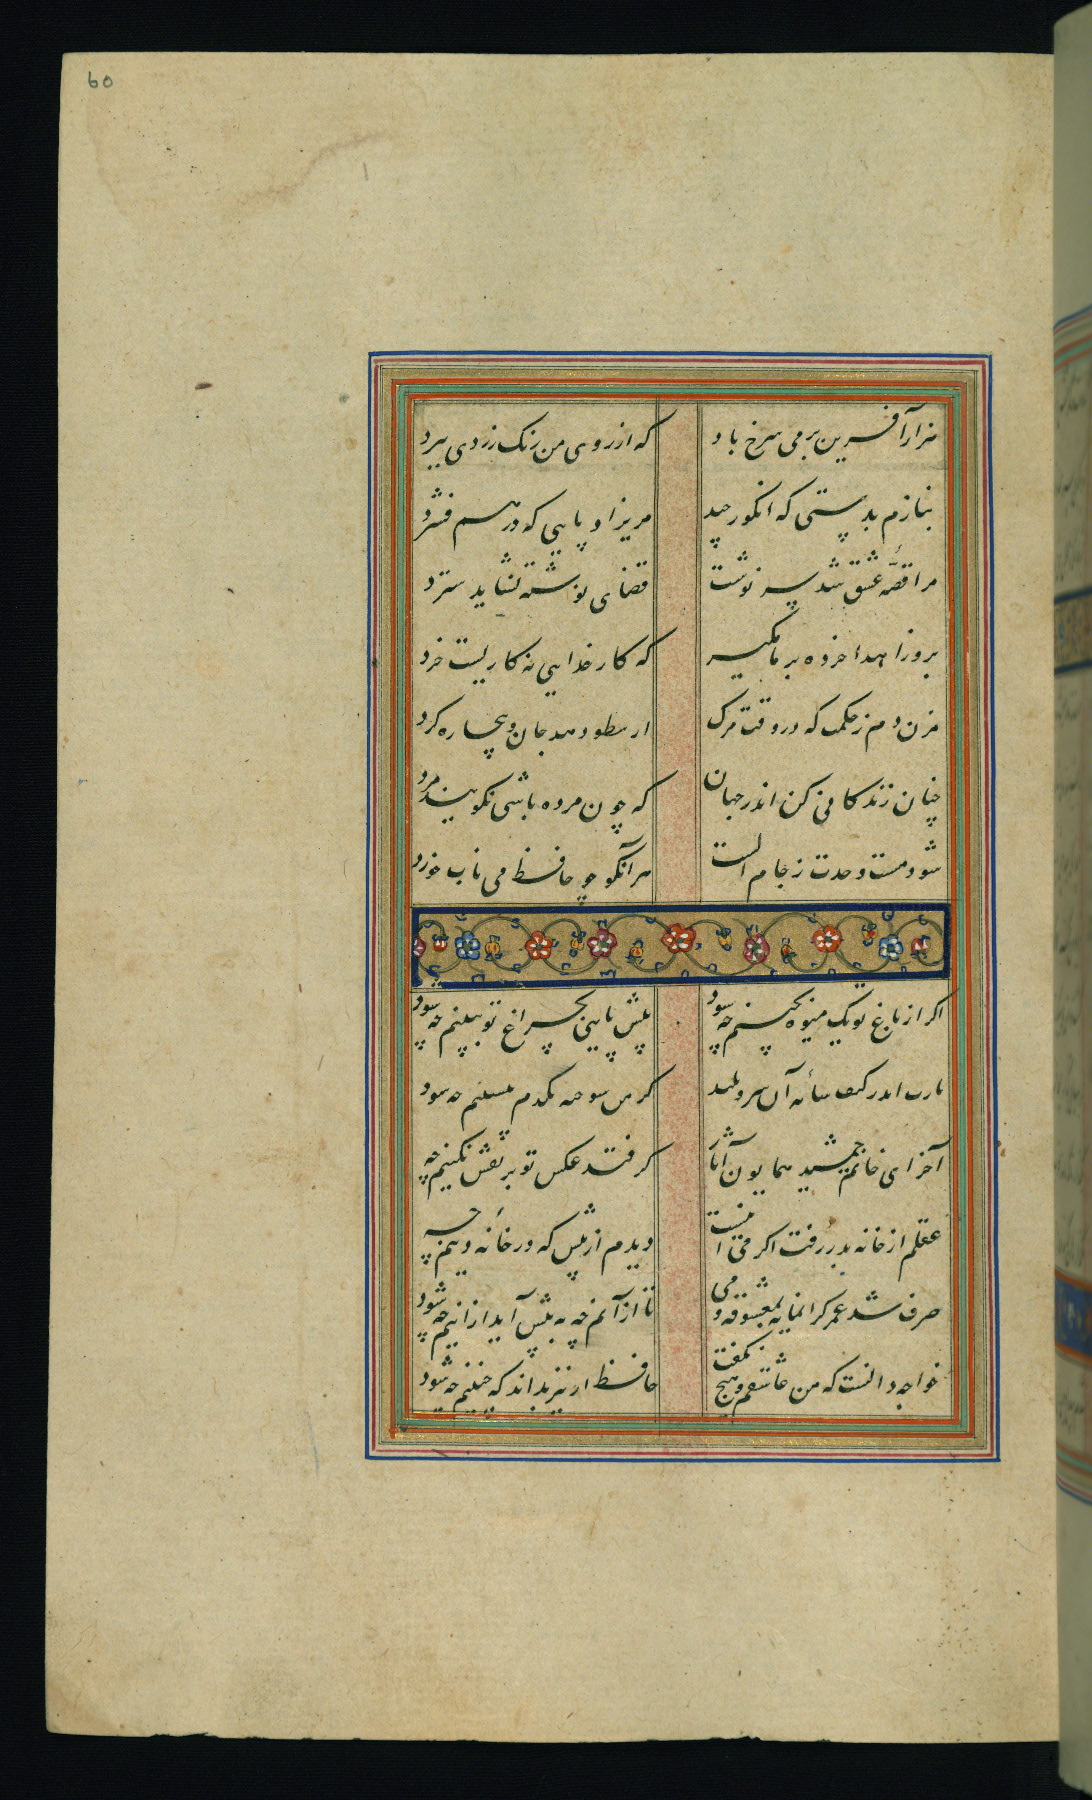 60
هزار آفرین بر می سرخ باد که از روی من رنگ زردی ببرد
بنازم بدستی که انکور چید مریزاد پایی که در هم فشرد
مرا قصّهٔ عشق شد سر نوشت قضای نوشته نشاید سترد
برو زاهدا خرده بر ما مکیر که کار خدایی نه کاریست خرد
مزن دم ز حکمت که در وقت مرک ارسطو دهد جان و بیچاره کرد
چنان زندکانی کن اندر جهان که چون مرده باشی نکویند مرد
شود مست وحدت ز جام الست هر آنکو چو حافظ می ناب خورد
اکر از باغ تو یک میوه بچینم چه شود پیش پایی بچراغ تو ببینم چه شود
یارب اندر کنف سایهٔ آن سرو بلند کر من سوخته یکدم بنشینم چه شود
آخر ای خاتم جمشید همایون آثار کر فتد عکس تو بر نقش نکینم چه
عقلم از خانه بدر رفت اکر می اینست دیدم از پیش که در خانهٔ دینم چه
صرف شد عمر کرانمایه بمعشوقه و می تا از آنم چه به پیش آید ازینم چه شود
خواجه دانست که من عاشقم و هیچ نکفت حافظ ار نیز بداند که چنینم چه شود